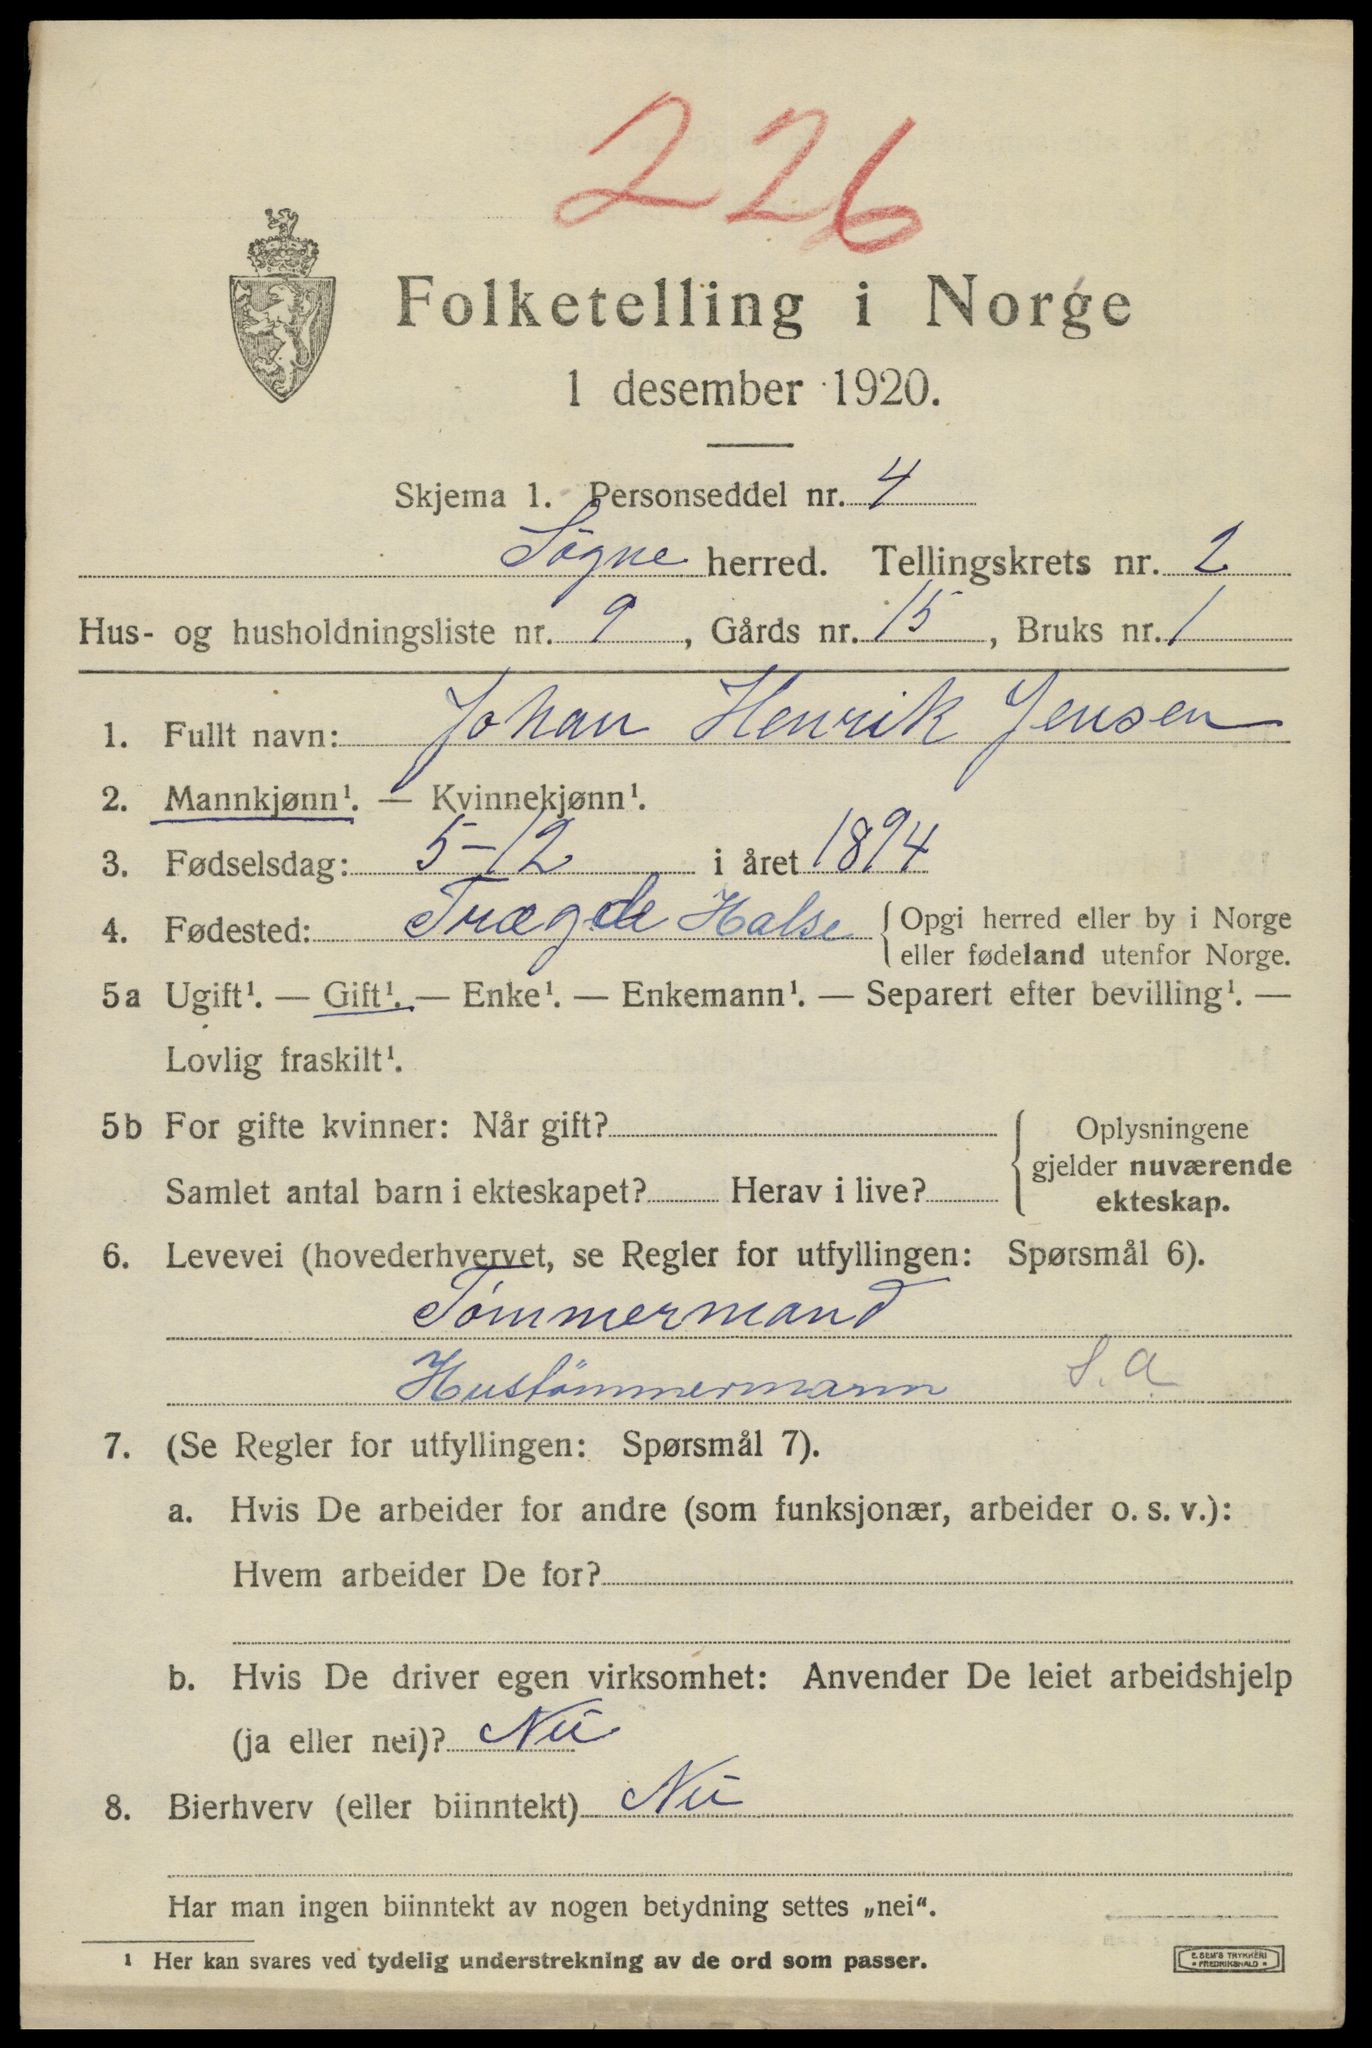 226
Folketelling i Norge
1 desember 1920.
Skjema 1. Personseddel nr. 4
Søgne herred. Tellingskrets nr. 2
Hus- og husholdningsliste nr. 9, Gårds nr. 15, Bruks nr. 1
1. Fullt navn: Johan Henrik Jensen
2. Mannkjønn¹. — Kvinnekjønn¹.
3. Fødselsdag: 5-12 i året 1894
4. Fødested: Trægde Halse { Opgi herred eller by i Norge
eller fødeland utenfor Norge.
5a Ugift¹. — Gift¹. — Enke¹. — Enkemann¹. — Separert efter bevilling¹. —
Lovlig fraskilt¹.
5b For gifte kvinner: Når gift?
Samlet antal barn i ekteskapet? Herav i live?
Oplysningene
gjelder nuværende
ekteskap.
6. Levevei (hovederhvervet, se Regler for utfyllingen: Spørsmål 6).
Tømmermand
Hustømmermann S.A.
7. (Se Regler for utfyllingen: Spørsmål 7).
a. Hvis De arbeider for andre (som funksjonær, arbeider o. s. v.):
Hvem arbeider De for?
b. Hvis De driver egen virksomhet: Anvender De leiet arbeidshjelp
(ja eller nei)? Nei
8. Bierhverv (eller biinntekt) Nei
Har man ingen biinntekt av nogen betydning settes „nei“.
¹ Her kan svares ved tydelig understrekning av de ord som passer.
E. SEM'S TRYKKERI
• FREDRIKSHALD •